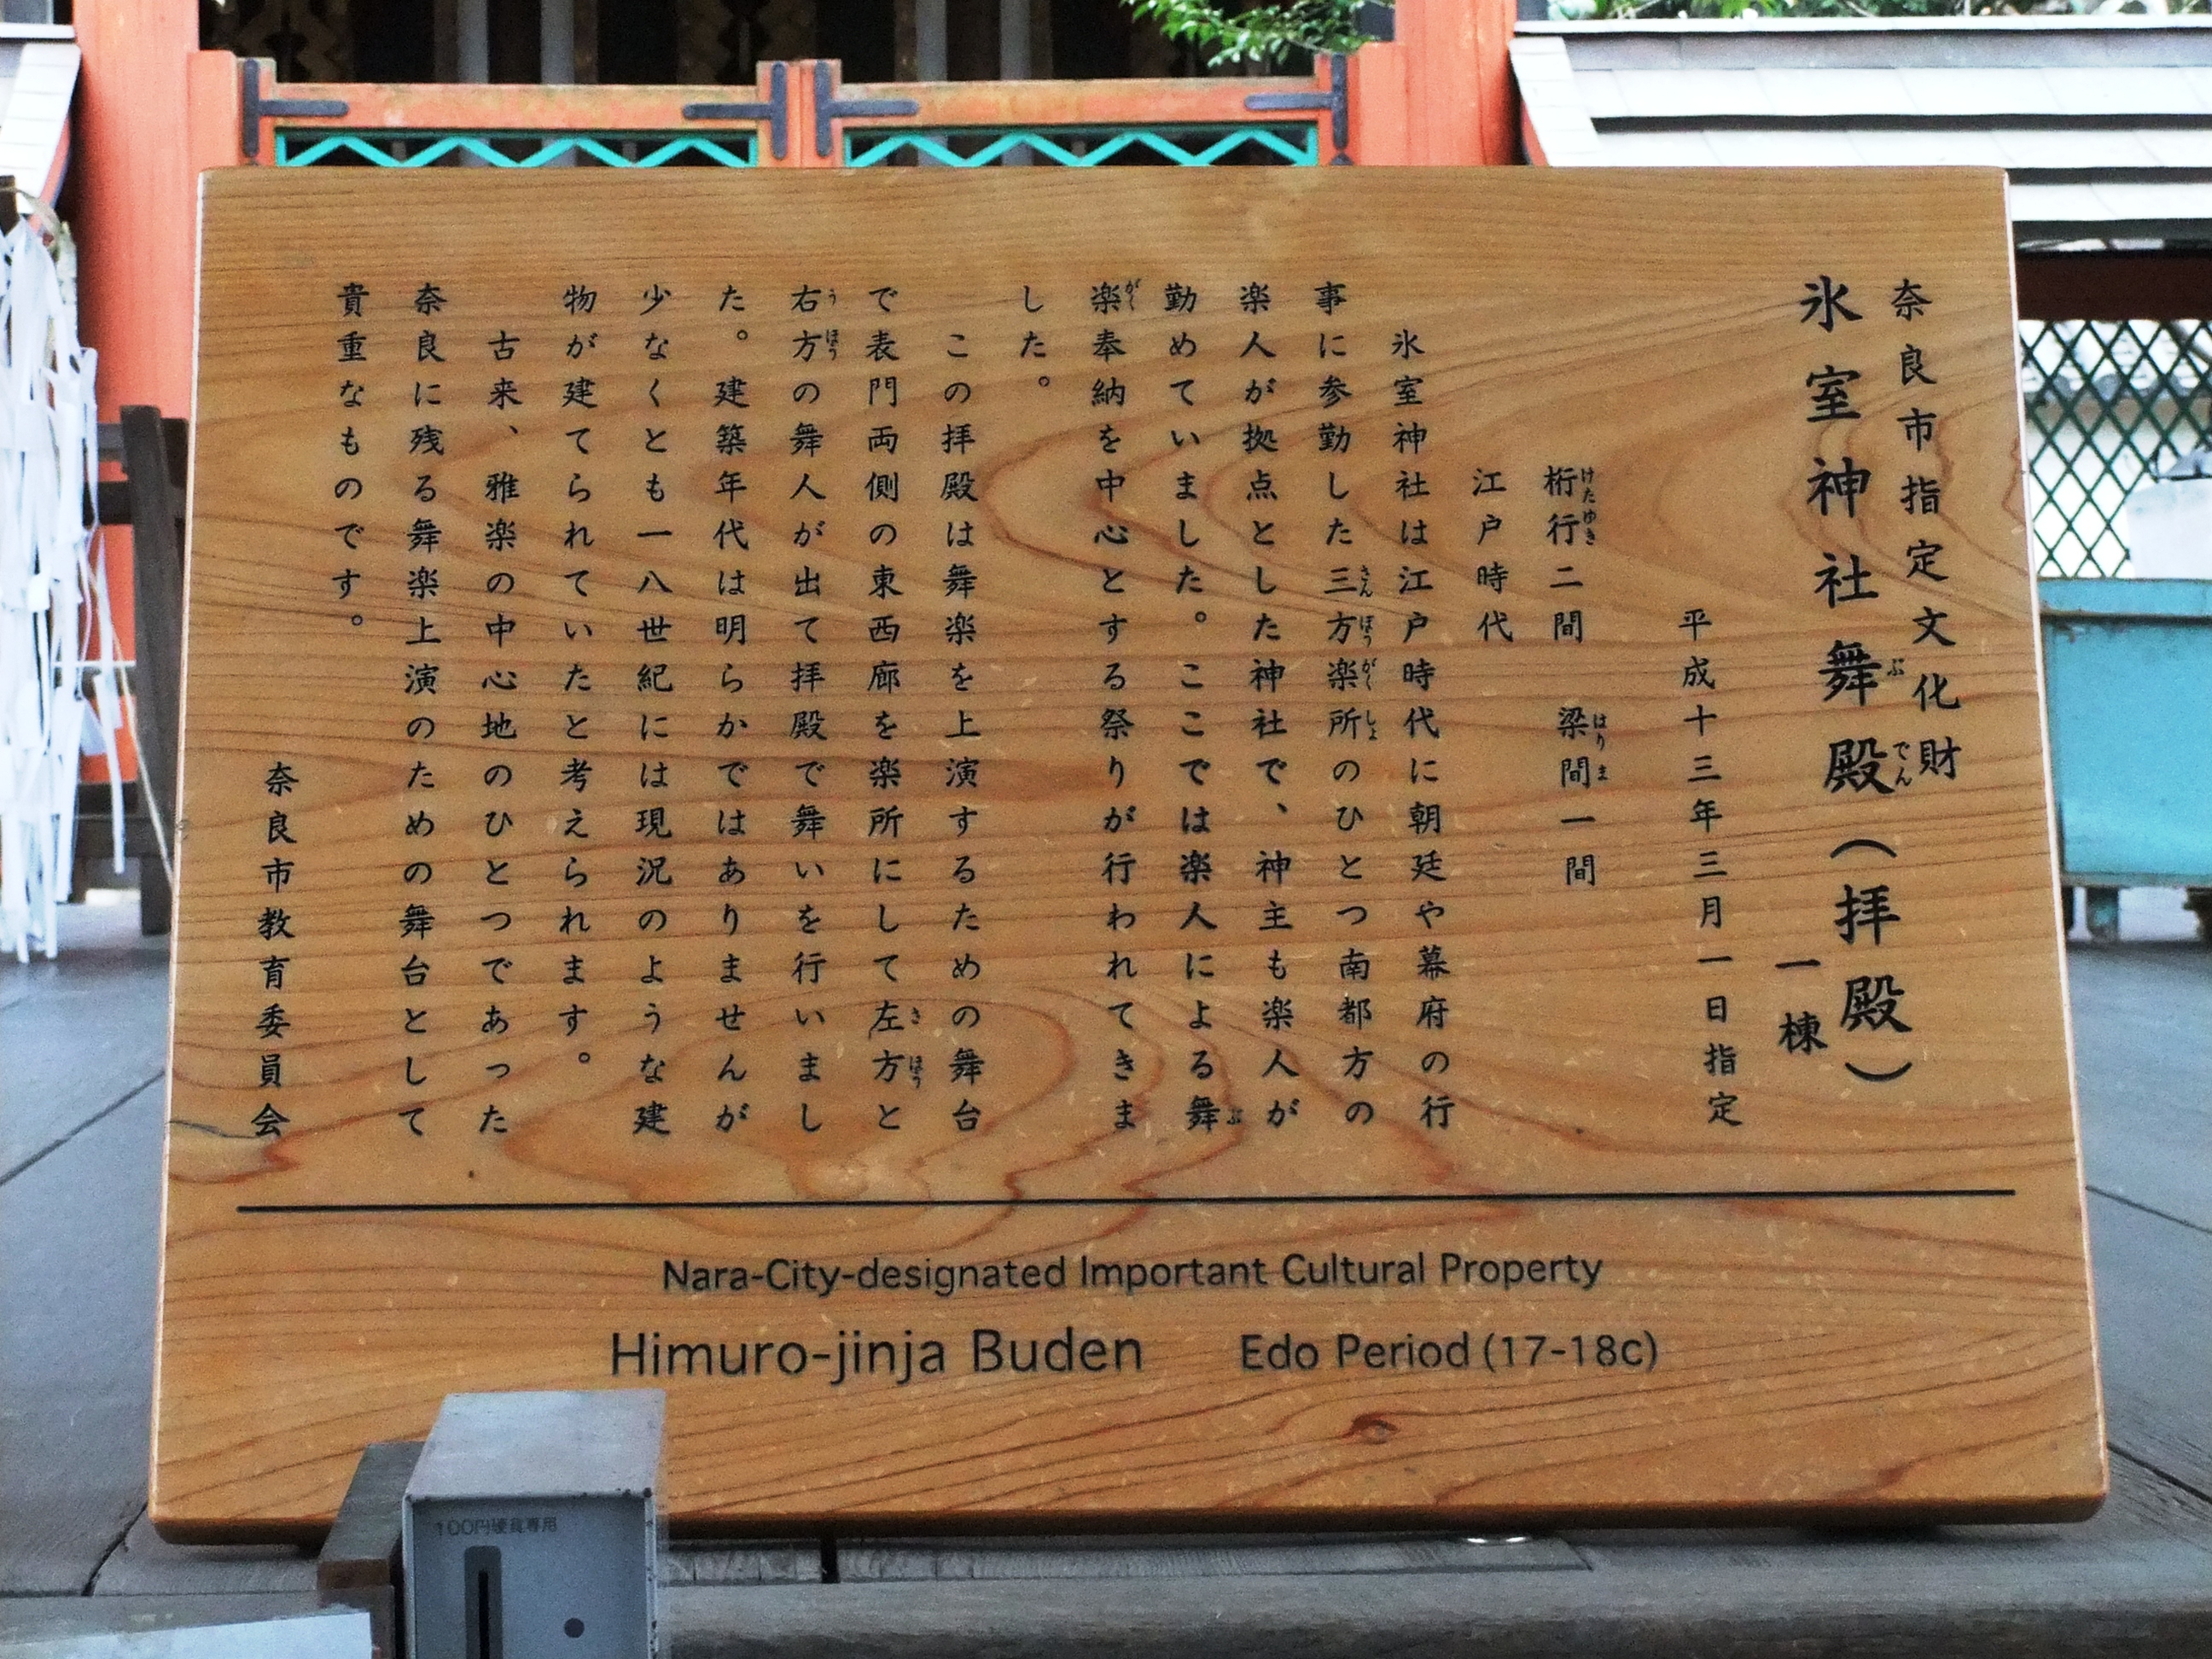 奈良市指定文化財
氷室神社舞殿（拝殿）
ぶでん
一棟
平成十三年三月一日指定
桁行二間　梁間一間
けたゆき　はりま
江戸時代
氷室神社は江戸時代に朝廷や幕府の行
事に参勤した三方楽所のひとつ南都方の
さんぽうがくしょ
楽人が拠点とした神社で、神主も楽人が
勤めていました。ここでは楽人による舞
ぶ
楽奉納を中心とする祭りが行われてきま
がく
した。
この拝殿は舞楽を上演するための舞台
で表門両側の東西廊を楽所にして左方と
さほう
右方の舞人が出て拝殿で舞いを行いまし
うほう
た。建築年代は明らかではありませんが
少なくとも一八世紀には現況のような建
物が建てられていたと考えられます。
古来、雅楽の中心地のひとつであった
奈良に残る舞楽上演のための舞台として
貴重なものです。
奈良市教育委員会
Nara-City-designated Important Cultural Property
Himuro-jinja Buden　Edo Period (17-18c)
100円硬貨専用